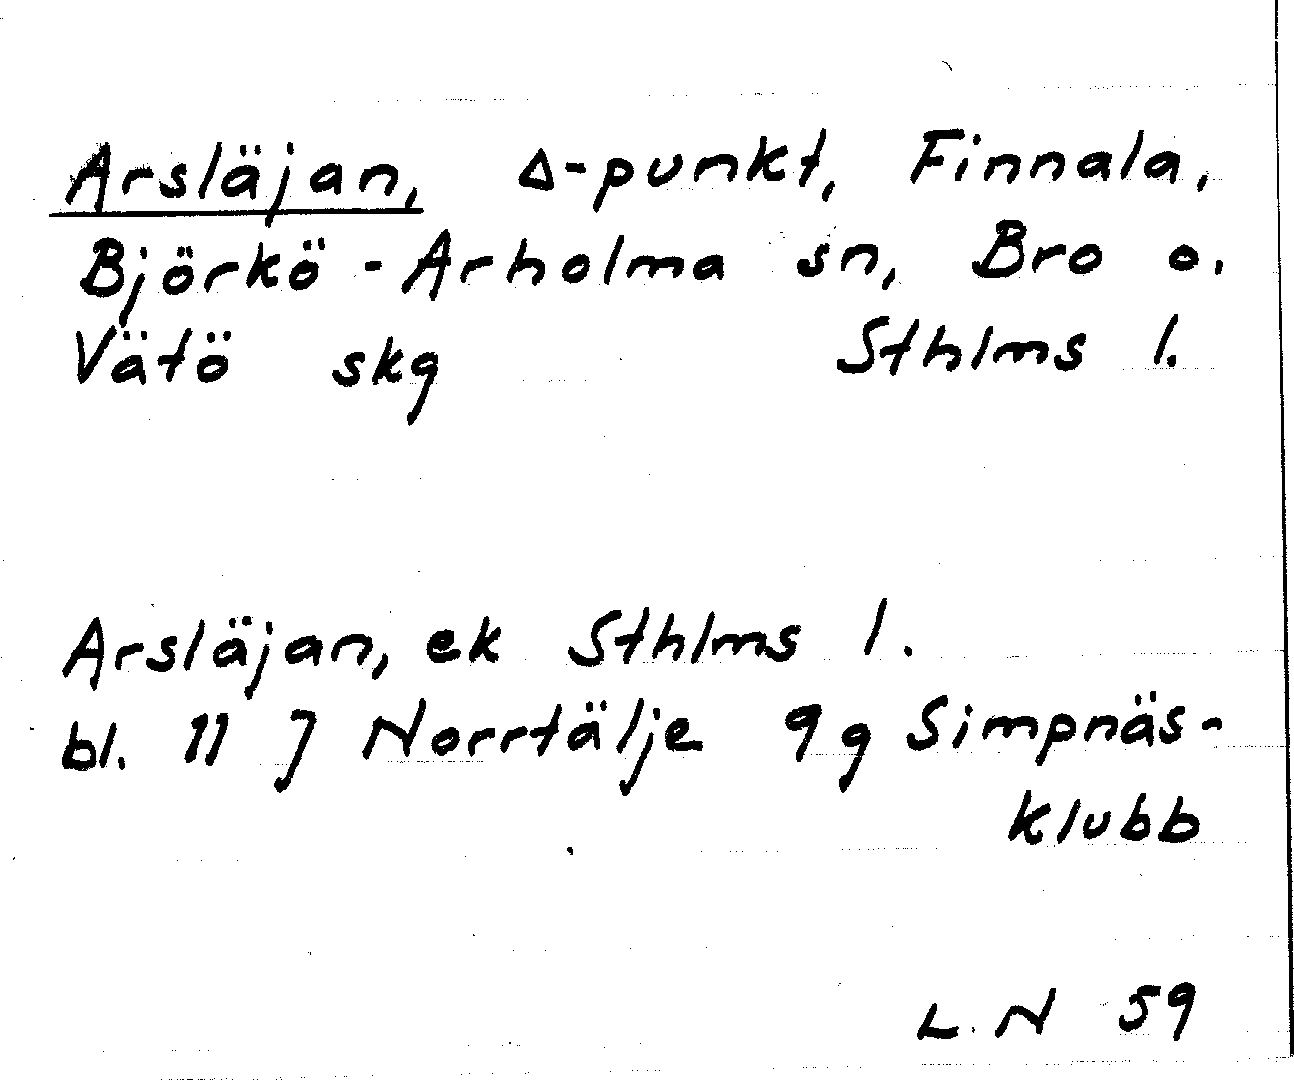 Arsläjan, Δ-punkt, Finnala,
Björkö-Arholma sn, Bro o.
Vätö skg Sthlms l.
Arsläjan, ek Sthlms l.
bl. 11 J Norrtälje 9g Simpnäs-
klubb
L.N 59